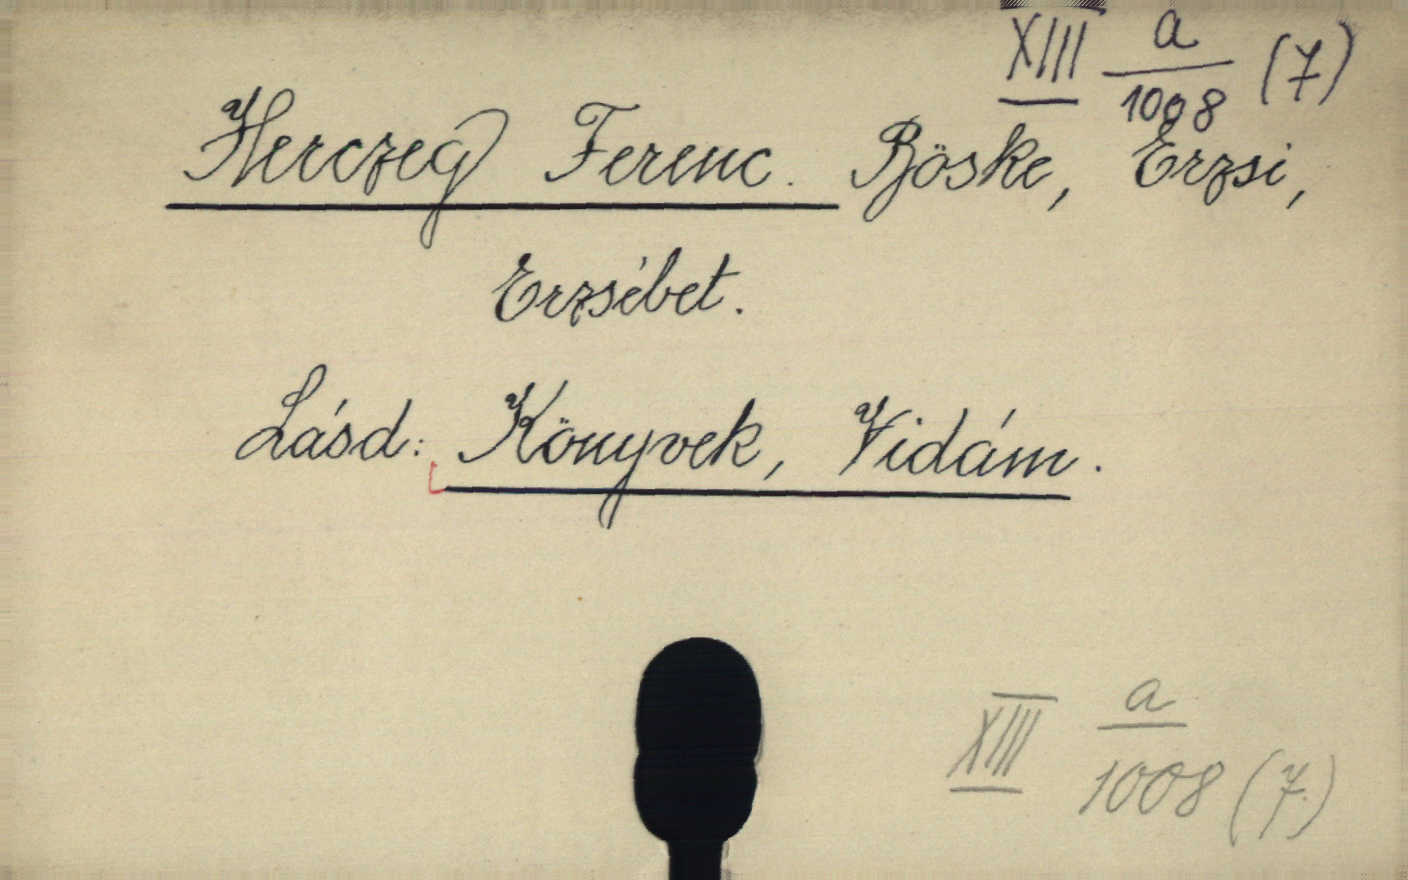 XIII a/1008 (7)
Herczeg Ferenc. Böske, Erzsi,
Erzsébet.
Lásd: Könyvek, Vidám.
XIII a/1008 (7.)